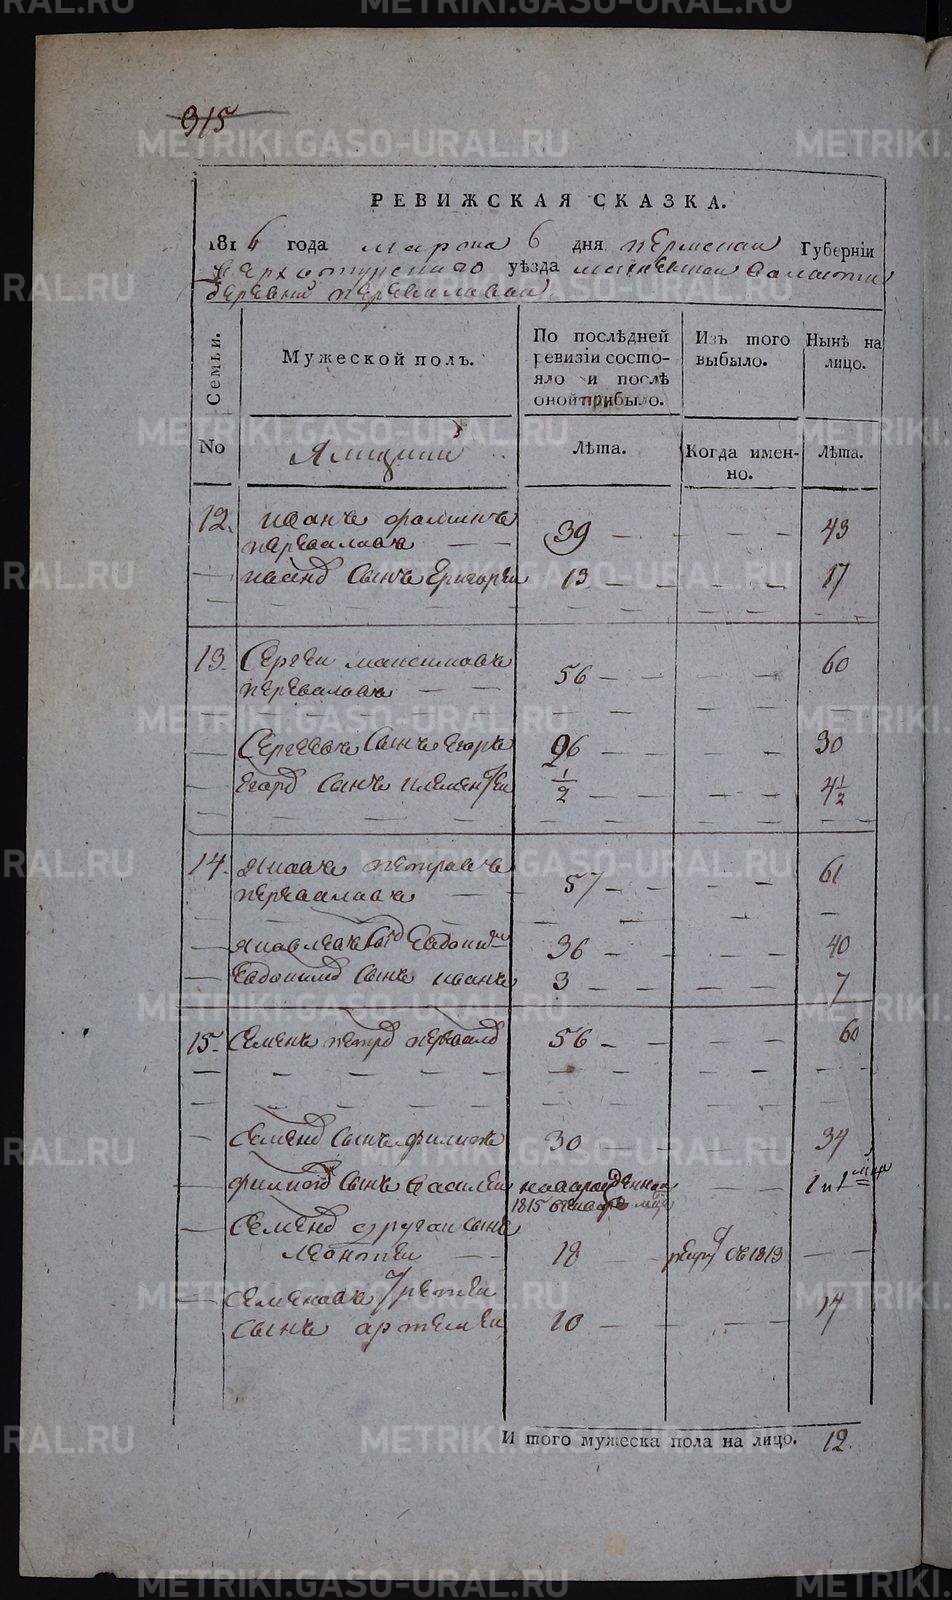 315
РЕВИЖСКАЯ СКАЗКА.
1816 года марта 6 дня пермской Губернїи
верхотурского уѣзда меневской валости
деревни переваловой
Семьи.
Мужеской полъ.
По послѣдней ревизїи состо-
яло и послѣ
оной прибыло.
Изъ того выбыло.
Нынѣ на лицо.
No
Ямщики
Лѣта.
Когда имен-
но.
Лѣта.
12. иванъ
переваловъ — — 39 — — — — 43
— иванд сынъ григореи 13 — — — — 17
13. Сергеи максимовъ
переваловъ — — 56 — — — 60
— Сергеевъ сынъ егоръ 26 — — — — 30
— Егорд сынъ клементеи ½ — — — — 4½
14. яковъ петровъ
переваловъ — 57 — — — 61
— яковлевъ сынъ евдоким 36 — — — — 40
— Евдокимд сынъ иванъ 3 — — — — 7
15. Семенъ петрд перевалд 56 — — — 60
— Семенд сынъ филипъ 30 — — — 34
— филипд сынъ василеи новорожденнои — — 1 и 1 мца
1815 генваре мце
— Семенд другои сынъ
леонтеи — — 18 — рекру въ 1813 — —
— семеновъ третеи
сынъ артемеи 10 — — — 14
И того мужеска пола на лицо. 12.
METRIKI.GASO-URAL.RU